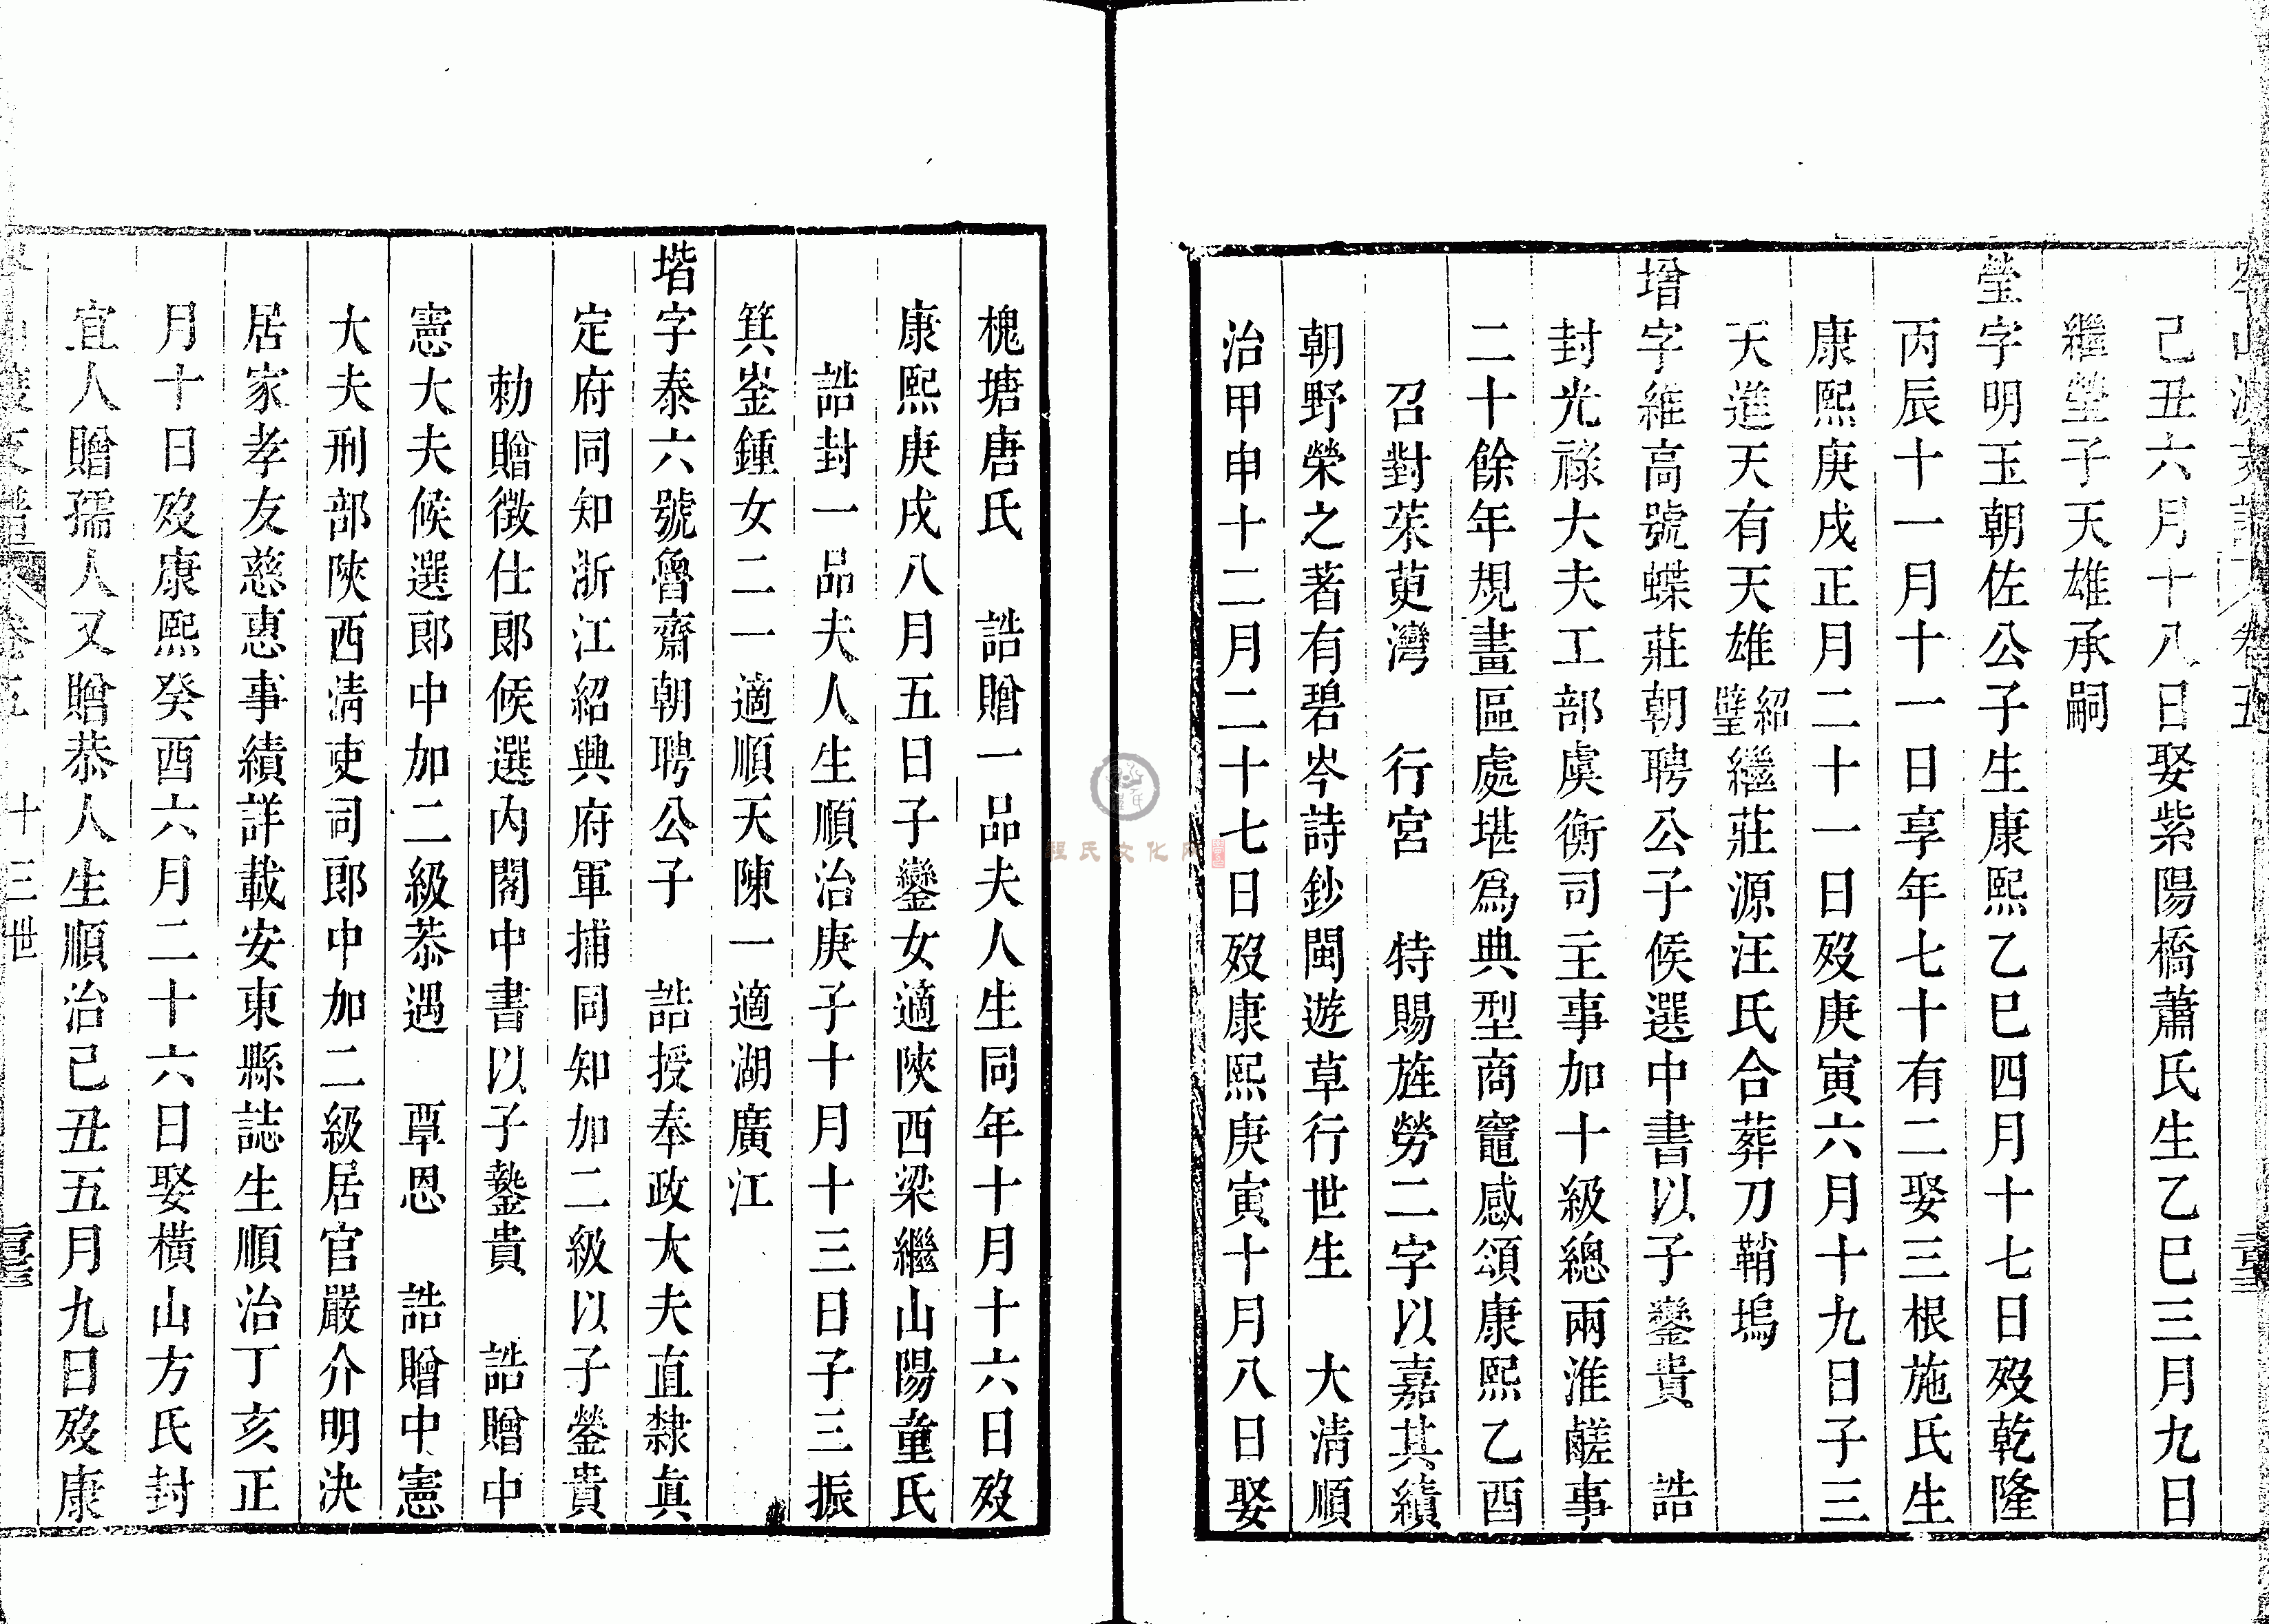 岑山渡支譜 卷五
己丑六月十八日娶紫陽橋蕭氏生乙巳三月九日
繼塋子天雄承嗣
瑩字明玉朝佐公子生康熙乙巳四月十七日歿乾隆
丙辰十一月十一日享年七十有二娶三根施氏生
康熙庚戌正月二十一日歿庚寅六月十九日子三
天進天有天雄紹塋繼莊源汪氏合葬刀鞘塢
增字維高號蝶莊朝聘公子候選中書以子鑾貴 誥
封光祿大夫工部虞衡司主事加十級總兩淮鹺事
二十餘年規畫區處堪為典型商竈感頌康熙乙酉
召對茱萸灣 行宮 特賜旌勞二字以嘉其績
朝野榮之著有碧岑詩鈔閩遊草行世生 大清順
治甲申十二月二十七日歿康熙庚寅十月八日娶
槐塘唐氏 誥贈一品夫人生同年十月十六日歿
康熙庚戌八月五日子鑾女適陝西梁繼山陽童氏
誥封一品夫人生順治庚子十月十三日子三振
箕崟鍾女二一適順天陳一適湖廣江
堦字泰六號魯齋朝聘公子 誥授奉政大夫直隸真
定府同知浙江紹興府軍捕同知加二級以子鎣貴
勅贈徵仕郎候選內閣中書以子鏊貴 誥贈中
憲大夫候選郎中加二級恭遇 覃恩 誥贈中憲
大夫刑部陝西清吏司郎中加二級居官嚴介明決
居家孝友慈惠事績詳載安東縣誌生順治丁亥正
月十日歿康熙癸酉六月二十六日娶橫山方氏封
宜人贈孺人又贈恭人生順治己丑五月九日歿康
岑山渡支譜 卷五 十三世
程氏文化网